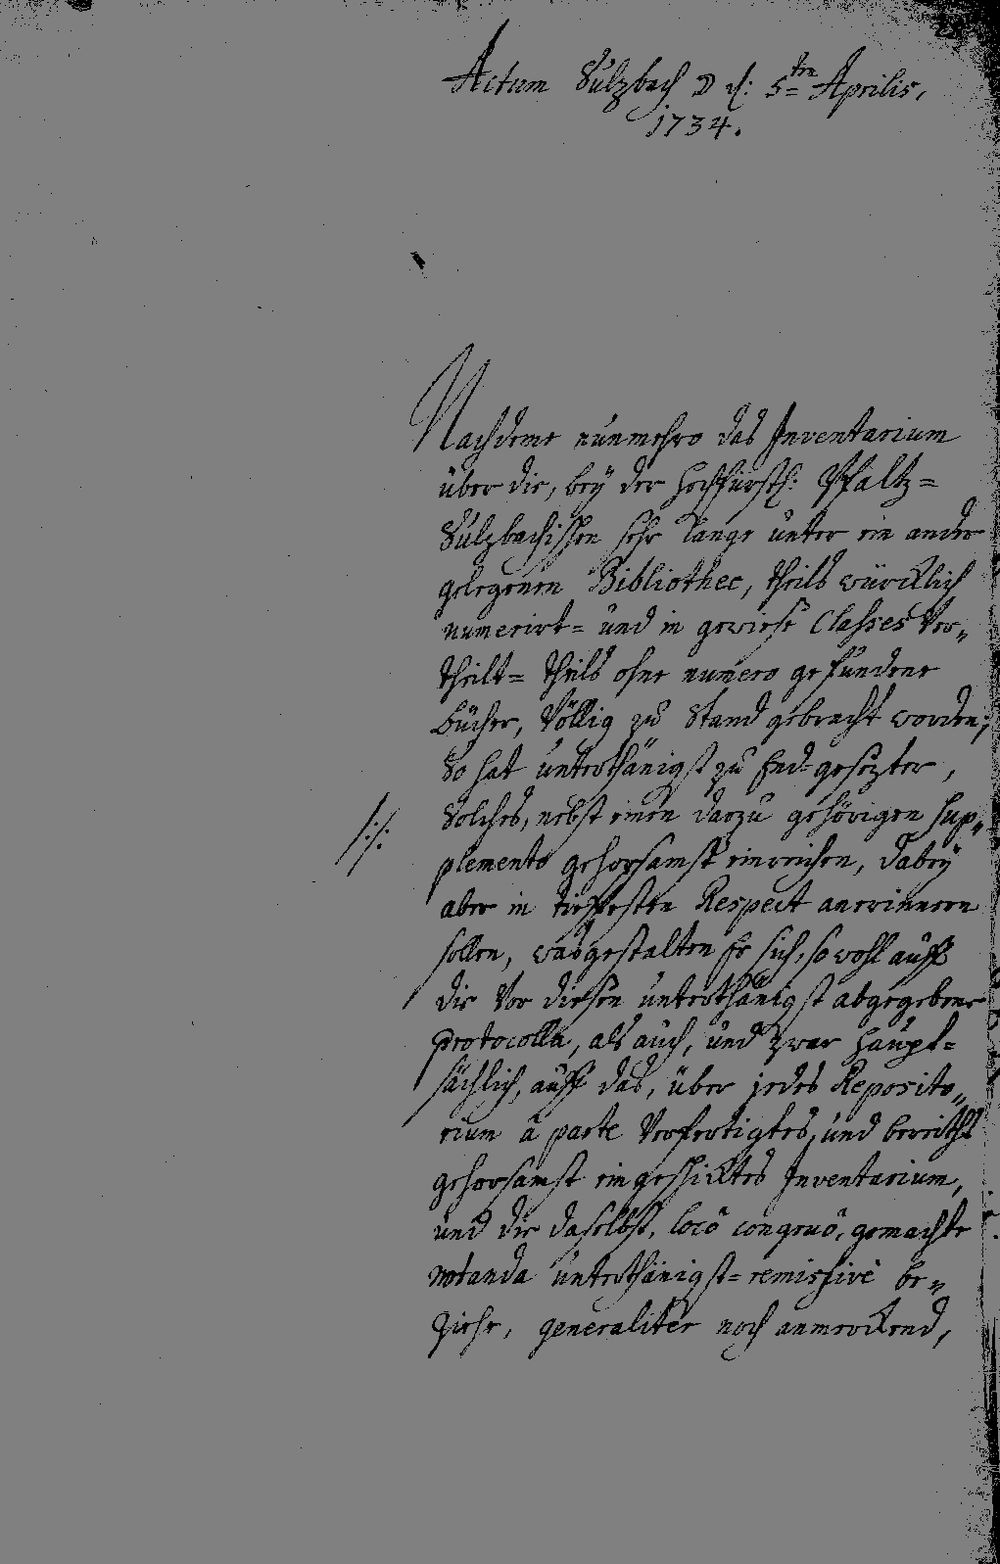 Actum Sulzbach D. d: 5ten Aprilis,
1734.
Nachdeme nunmehro das Inventarium
über die, bey der hochfürstl: Pfaltz=
Sulzbachischen sehr lange unter ein ander
gelegenen Bibliothec, theils würcklich
numerirt= und in gewiese Classes ver„
theilt= theils ohne numero gefundene
Bücher, völlig zu Stand gebracht worden;
So hat unterthänigst zu End=gesezter,
Solches, nebst einen darzu gehörigen Sup„
plemento gehorsamst einreichen, dabey
aber in tieffesten Respect anerinnern
sollen, wasgestalten Er sich, so wohl auff
die vor diesen unterthänigst abgegebene
protocolla, als auch, und zwar haupt=
sächlich, auff das, über jedes Reposito„
rium à parte verfertigtes, und bereiths
gehorsamst eingeschicktes Inventarium,
und die daselbst, locô congruô, gemachte
notanda unterthänigst=remissivè be„
ziehe, generaliter noch anmerckend,